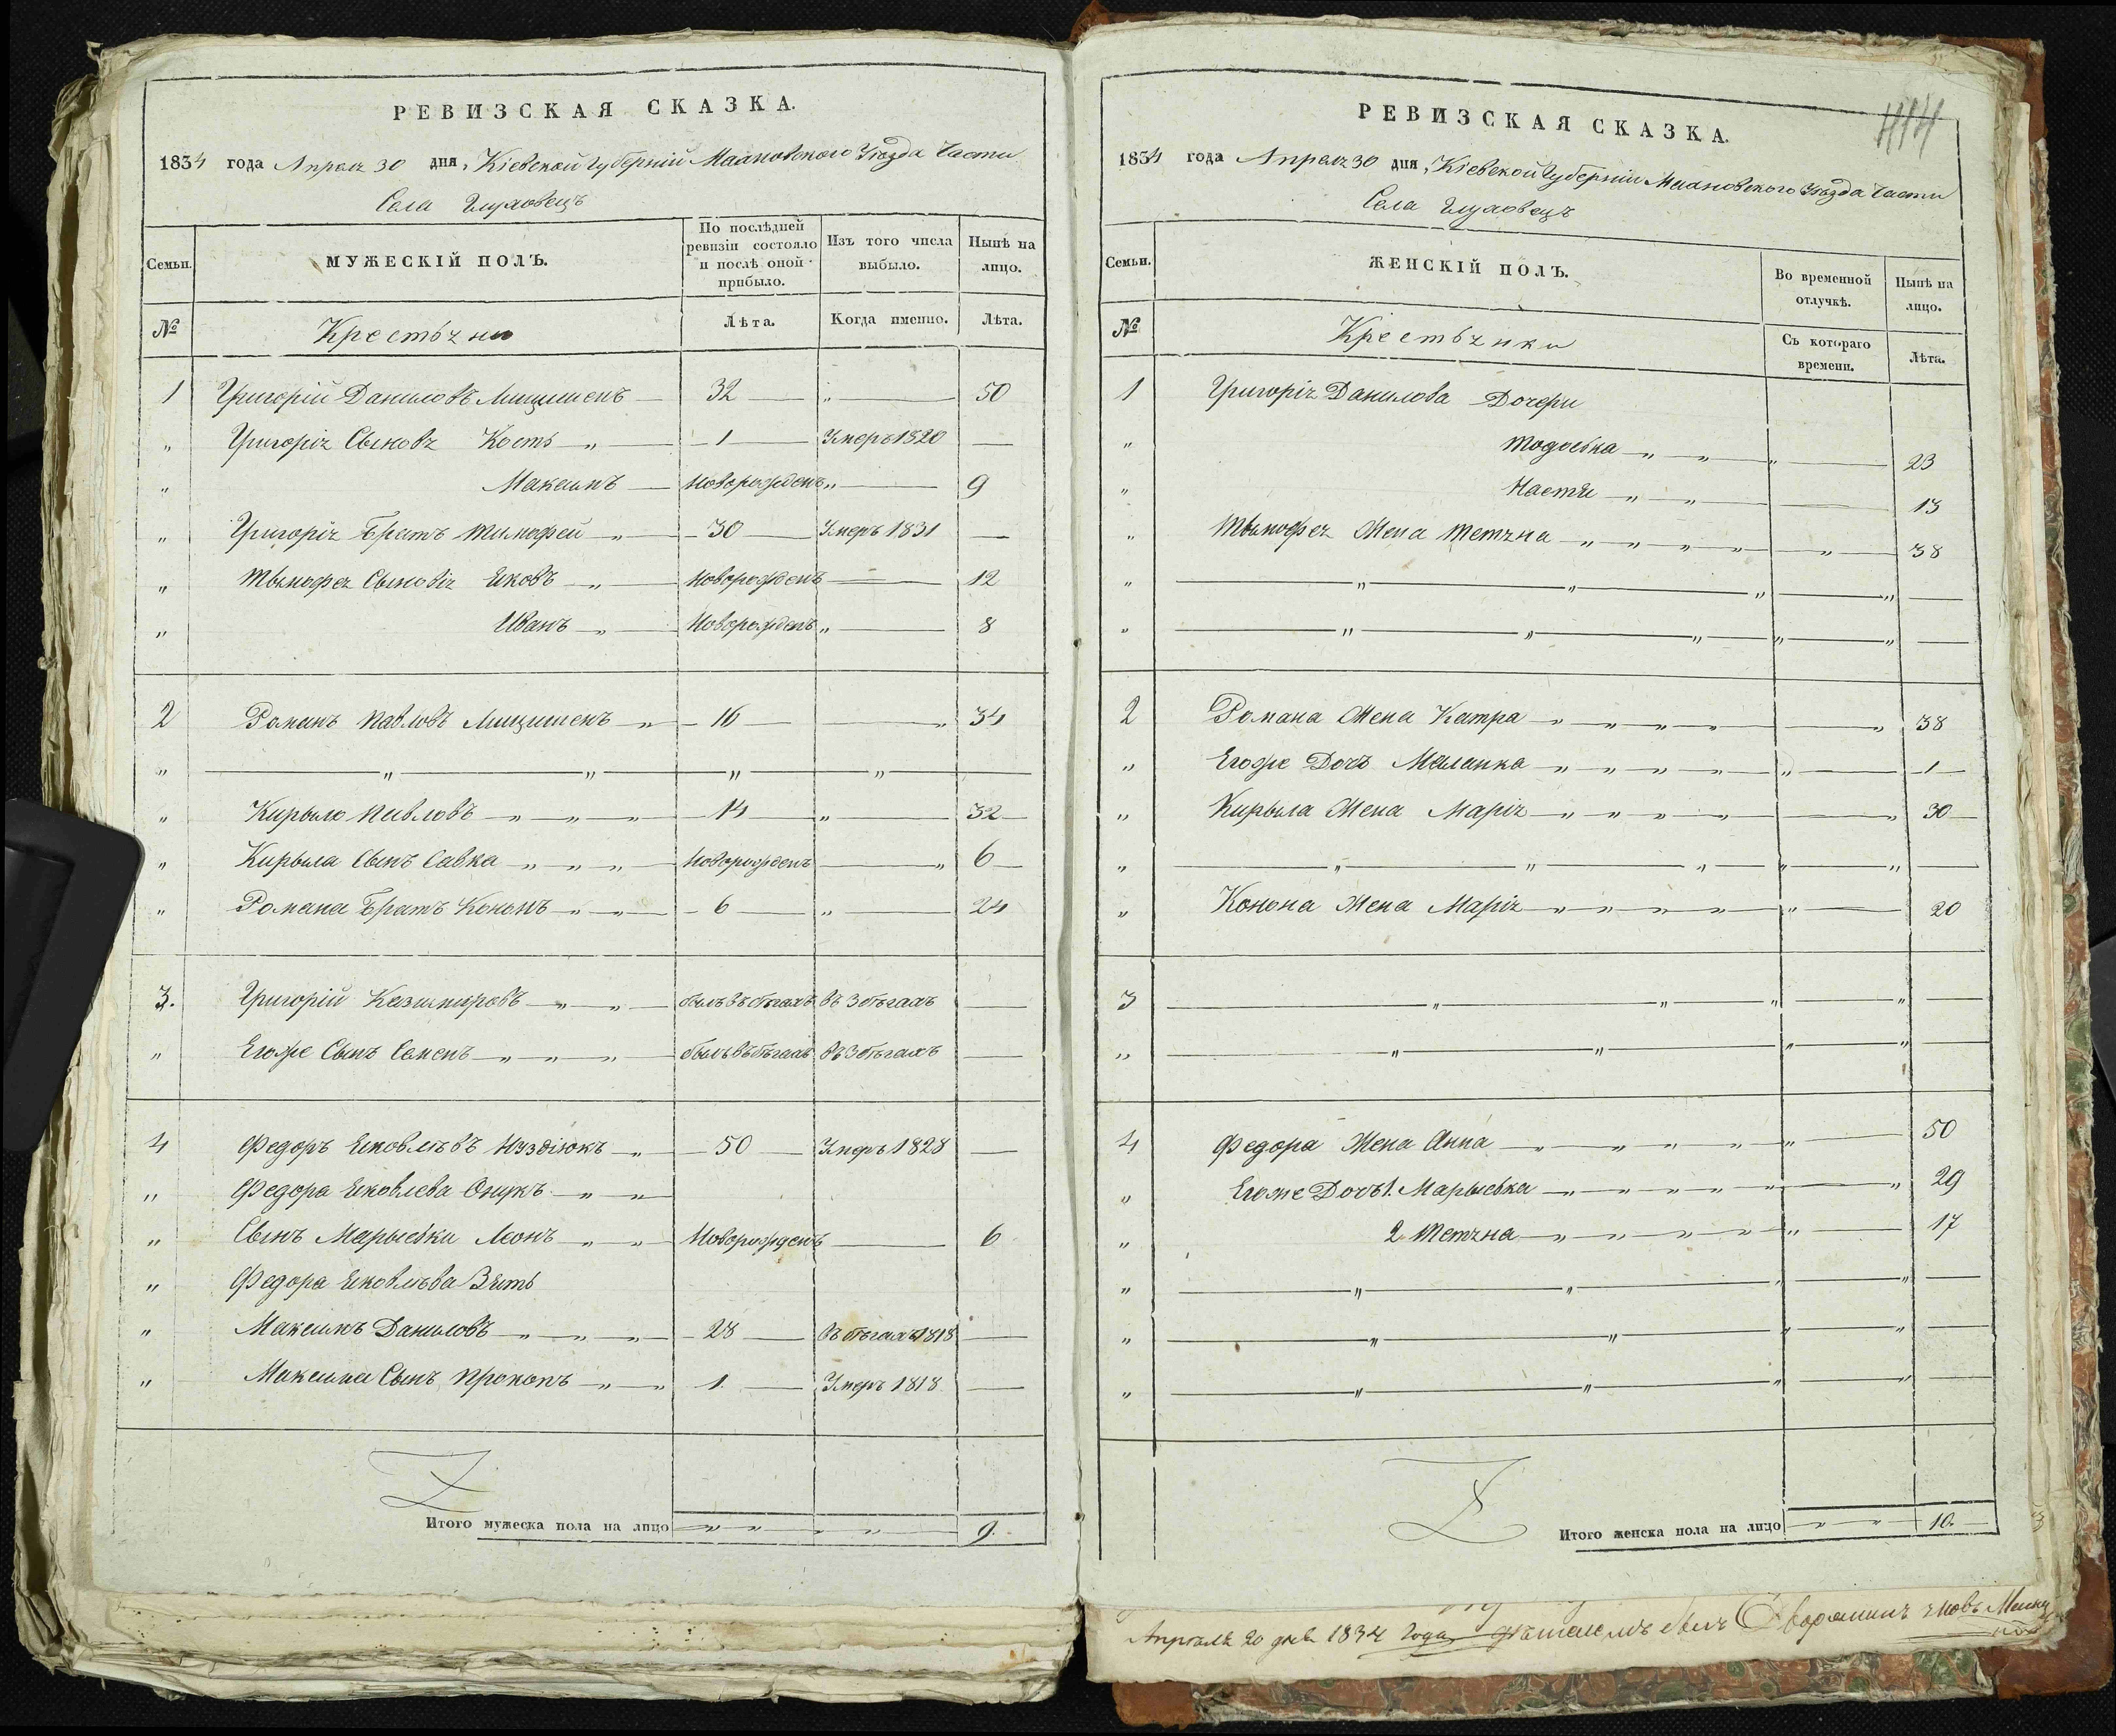 РЕВИЗСКАЯ СКАЗКА.
1834 года Апреля 30 дня, Кіевской Губерніи Махновского Уезда Части
Села Глуховецъ
Семьи.
МУЖЕСКІЙ ПОЛЪ.
По послѣдней ревизіи состояло и послѣ оной прибыло.
Изъ того числа выбыло.
Нынѣ на лицо.
№
Крестьяни
Лѣта.
Когда именно.
Лѣта.
1 Григорій Даниловъ Мицишенъ — 32 — „ — 50
„ Григорія Сыновя Кость „ — 1 — Умеръ 1820 —
„ Максимъ — Новорожденъ „ — 9
„ Григорія Братъ Тимофей „ — 30 — Умеръ 1831 —
„ Тымофея Сыновія Яковъ „ — Новорожденъ — 12
„ Иванъ „ — Новорожденъ „ — 8
2 Романъ Павловъ Мицишенъ „ — 16 — „ 34
„ — „ — „ — „ — „ —
„ Кирыло Павловъ „ „ „ — 14 — „ — 32
„ Кирыла Сынъ Савка „ „ „ — Новорожденъ — „ 6
„ Романа Братъ Кононъ „ „ — 6 — „ — 24
3. Григорій Казимировъ „ „ — былъ въ бѣгахъ въ Збѣгахъ —
„ Егоже Сынъ Семенъ „ „ „ — былъ въ бѣгахъ въ Збѣгахъ —
4 Федоръ Яковлѣвъ Нуздіюкъ „ — 50 — Умеръ 1828 —
„ Федора Яковлева Онукъ „ „
„ Сынъ Марыевки Леонъ „ „ Новорожденъ — 6
„ Федора Яковлѣва Зять
„ Максимъ Даниловъ „ „ „ — 28 — въ бѣгахъ 1818 —
„ Максима Сынъ Прокопъ „ „ 1. — Умеръ 1818 —
Итого мужеска пола на лицо „ „ „ „ 9.
РЕВИЗСКАЯ СКАЗКА.
1834 года Апреля 30 дня, Кіевской Губерніи Махновского Уезда Части
Села Глуховецъ
Семьи.
ЖЕНСКІЙ ПОЛЪ.
Во временной отлучкѣ.
Нынѣ на лицо.
№
Крестьянки
Съ котораго времени.
Лѣта.
1 Григорія Данилова Дочери
„ Тодоська „ „ „ — 23
„ Настя „ „ — 13
„ Тымофея Жена Тетяна „ „ „ „ — „ — 38
„ — „ — „ — „ — „ —
„ — „ — „ — „ — „ — „ —
2 Романа Жена Катра „ „ „ „ — „ 38
„ Егоже Дочъ Маланка „ „ „ „ — „ — 1
„ Кирыла Жена Марія „ „ „ „ — „ 30
„ — „ — „ — „ — „ — „ —
„ Конона Жена Марія „ „ „ „ — „ — 20
3 — „ — „ — „ — „ —
„ — „ — „ — „ — „ —
4 Федора Жена Анна „ „ „ „ — „ — 50
„ Егоже Дочъ 1. Марыевка „ „ „ „ „ — „ 29
„ 2 Тетяна „ „ „ „ — „ — 17
„ — „ — „ — „ — „ —
„ — „ — „ — „ — „ —
„ — „ — „ — „ — „ —
Итого женска пола на лицо „ „ 10.
Апрѣля 20 дня 1834 года